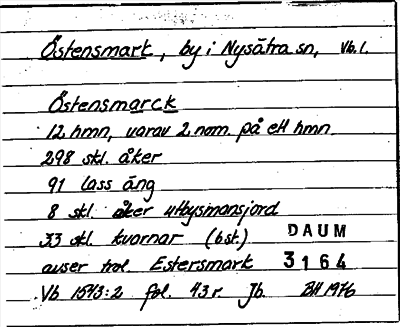 Östensmark, by i Nysätra sn, Vb. l.
Östensmarck
12 hmn, varav 2 nom. på ett hmn
298 skl. åker
91 lass äng
8 skl. åker utbysmansjord
33 skl. kvarnar (6 st.)
DAUM
avser trol. Estersmark
3164
Vb 1543:2 fol. 43 r. Jb.
BH 1976